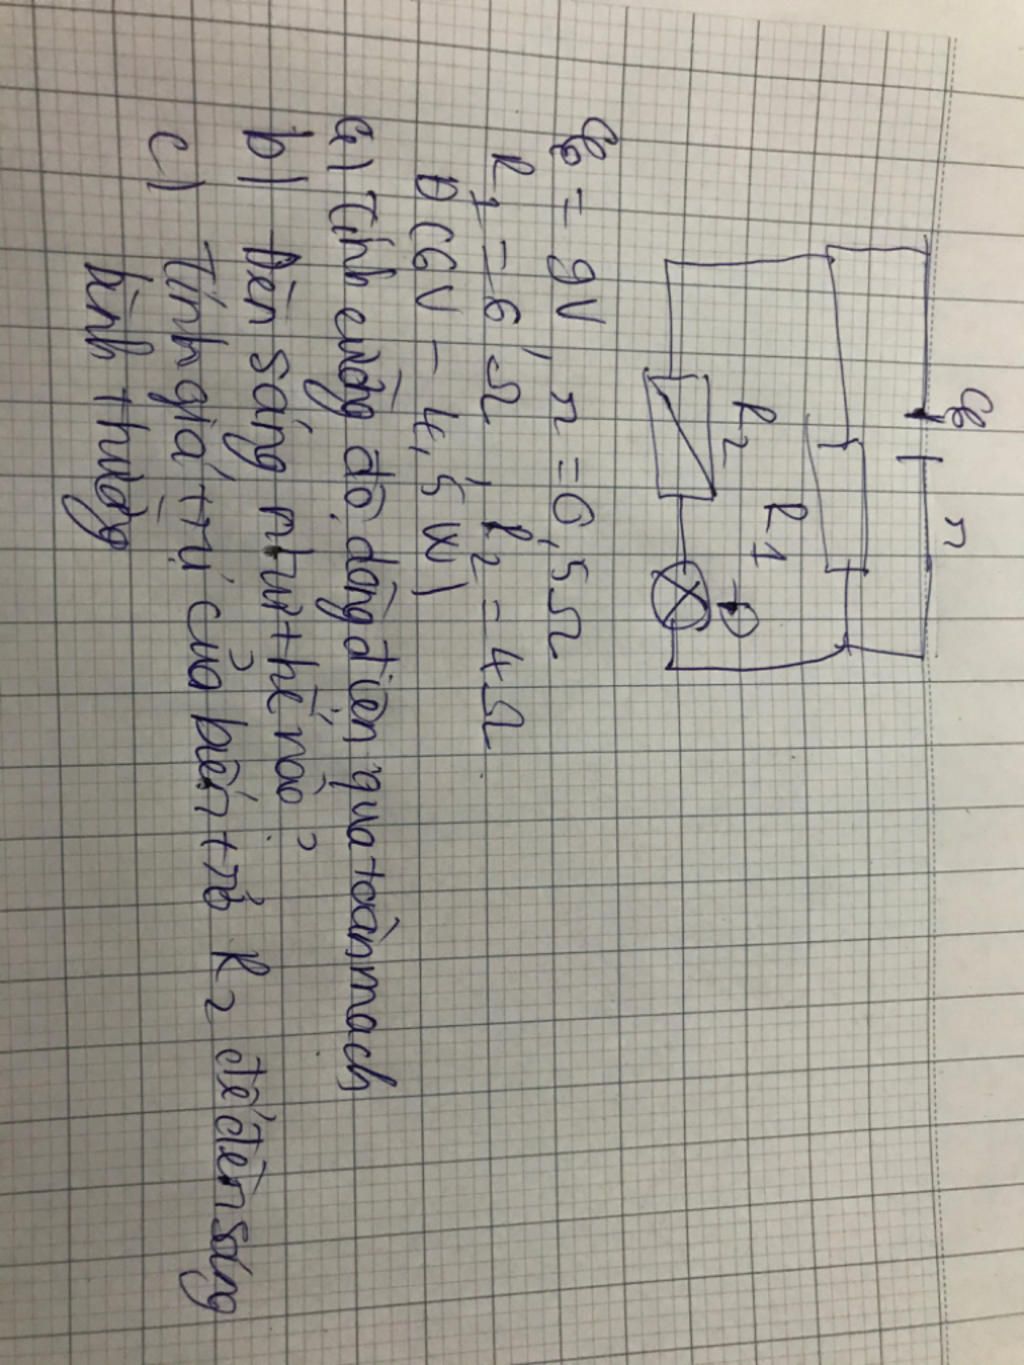 ℰ r
R1
R2 Đ
ℰ = 9V, r = 0,5Ω
R1 = 6Ω, R2 = 4Ω
Đ (6V - 4,5W)
a) Tính cường độ dòng điện qua toàn mạch
b) Đèn sáng như thế nào?
c) Tính giá trị của biến trở R2 để đèn sáng
bình thường